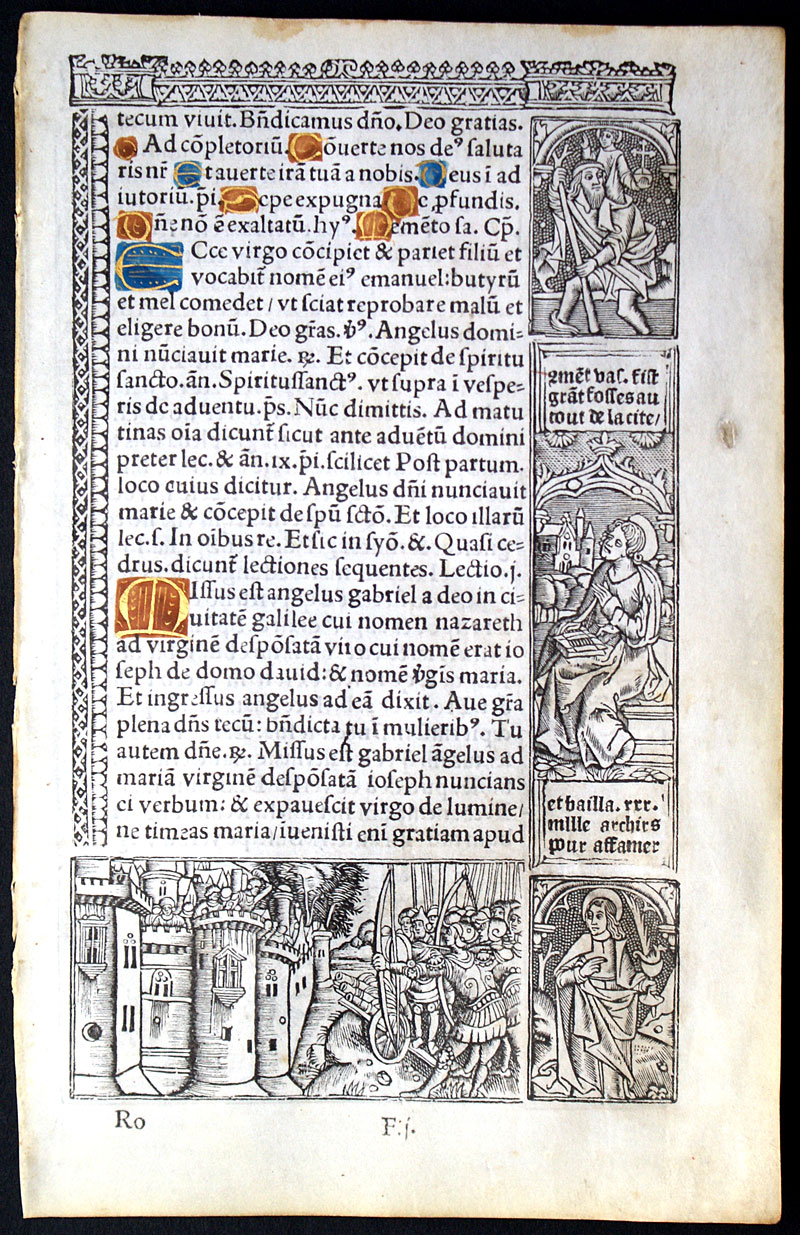 tecum viuit. Bñdicamus dño. Deo gratias.
Ad cõpletoriũ. Cõuerte nos deꝰ saluta
ris nr̃ Et auerte irã tuã a nobis. Deus ĩ ad
iutoriu. p̃i. Sepe expugna De ꝓfundis.
Dñe nõ ẽ exaltatũ. hyꝰ. Memẽto sa. Cp̃.
ECce virgo cõcipiet & pariet filiũ et
vocabit̃ nomẽ eiꝰ emanuel: butyrũ
et mel comedet / vt sciat reprobare malũ et
eligere bonũ. Deo gr̃as. ꝟꝰ. Angelus domi=
ni nũciauit marie. ℞. Et cõcepit de spiritu
sancto. añ. Spiritussanctꝰ. vt supra ĩ vespe=
ris de aduentu. p̃s. Nũc dimittis. Ad matu
tinas oĩa dicunt̃ sicut ante aduẽtũ domini
preter lec. & añ. ix. p̃i. scilicet Post partum.
loco cuius dicitur. Angelus dñi nunciauit
marie & cõcepit de spũ sctõ. Et loco illarũ
lec. s. In oibus re. Et sic in syõ. &. Quasi ce=
drus. dicunt̃ lectiones sequentes. Lectio. j.
MIssus est angelus gabriel a deo in ci=
uitatẽ galilee cui nomen nazareth
ad virginẽ despõsatã viro cui nomẽ erat io
seph de domo dauid: & nomẽ ꝟgis maria.
Et ingressus angelus ad eã dixit. Aue gr̃a
plena dñs tecũ: bñdicta tu ĩ mulieribꝰ. Tu
autem dñe. ℞. Missus est gabriel ãgelus ad
mariã virginẽ despõsatã ioseph nuncians
ei verbum: & expauescit virgo de lumine /
ne timeas maria / iuenisti eni gratiam apud
Ro
F.j.
fist
grãt fosses au
tout de la cite /
et bailla. xxx.
mille archirs
pour affamer